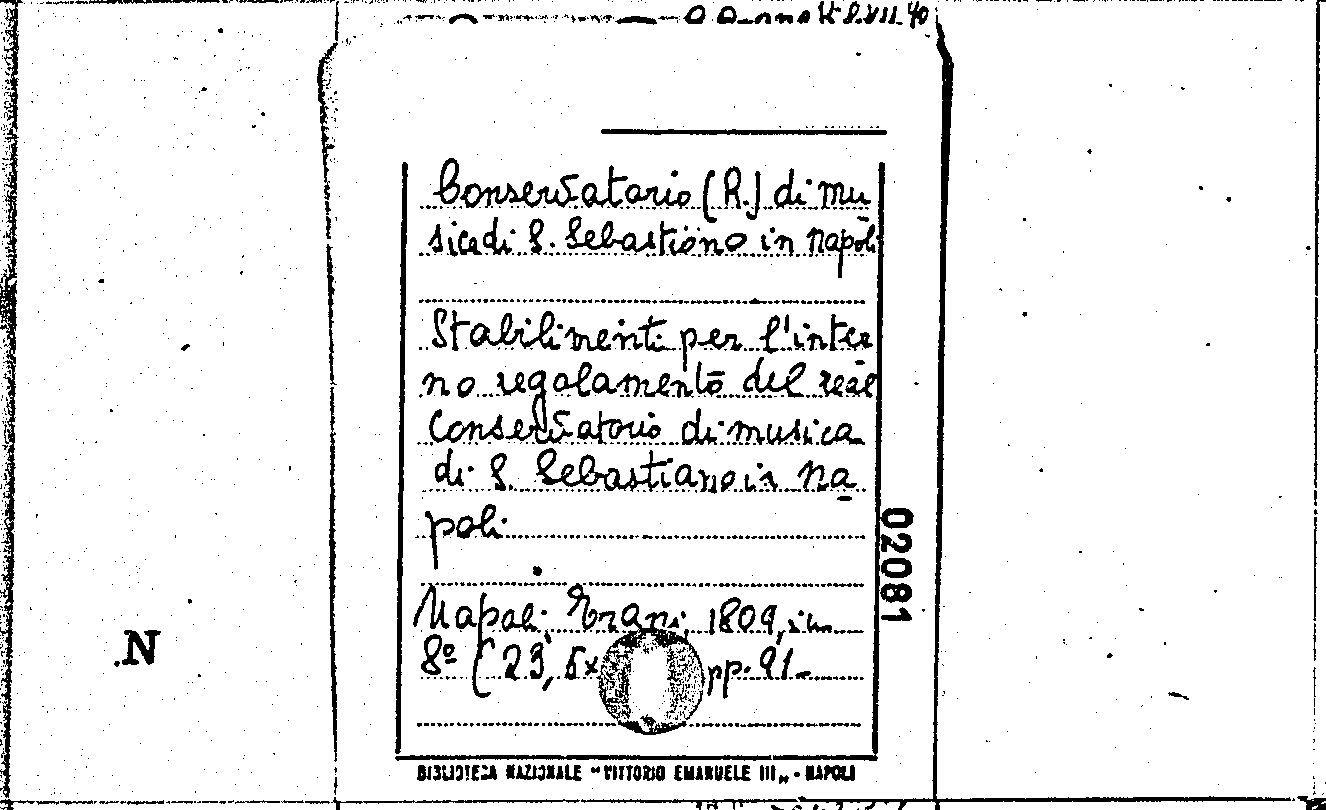 8.VII.40
Conservatorio (R.) di mu
sica di S. Sebastiano in Napoli
Stabilimenti per l'inter
no regolamento del real
Conservatorio di musica
di S. Sebastiano in Na
poli
Napoli Trani 1809, in
8º (23,5x pp. 91
02081
.N
BIBLIOTECA NAZIONALE "VITTORIO EMANUELE III„ - NAPOLI